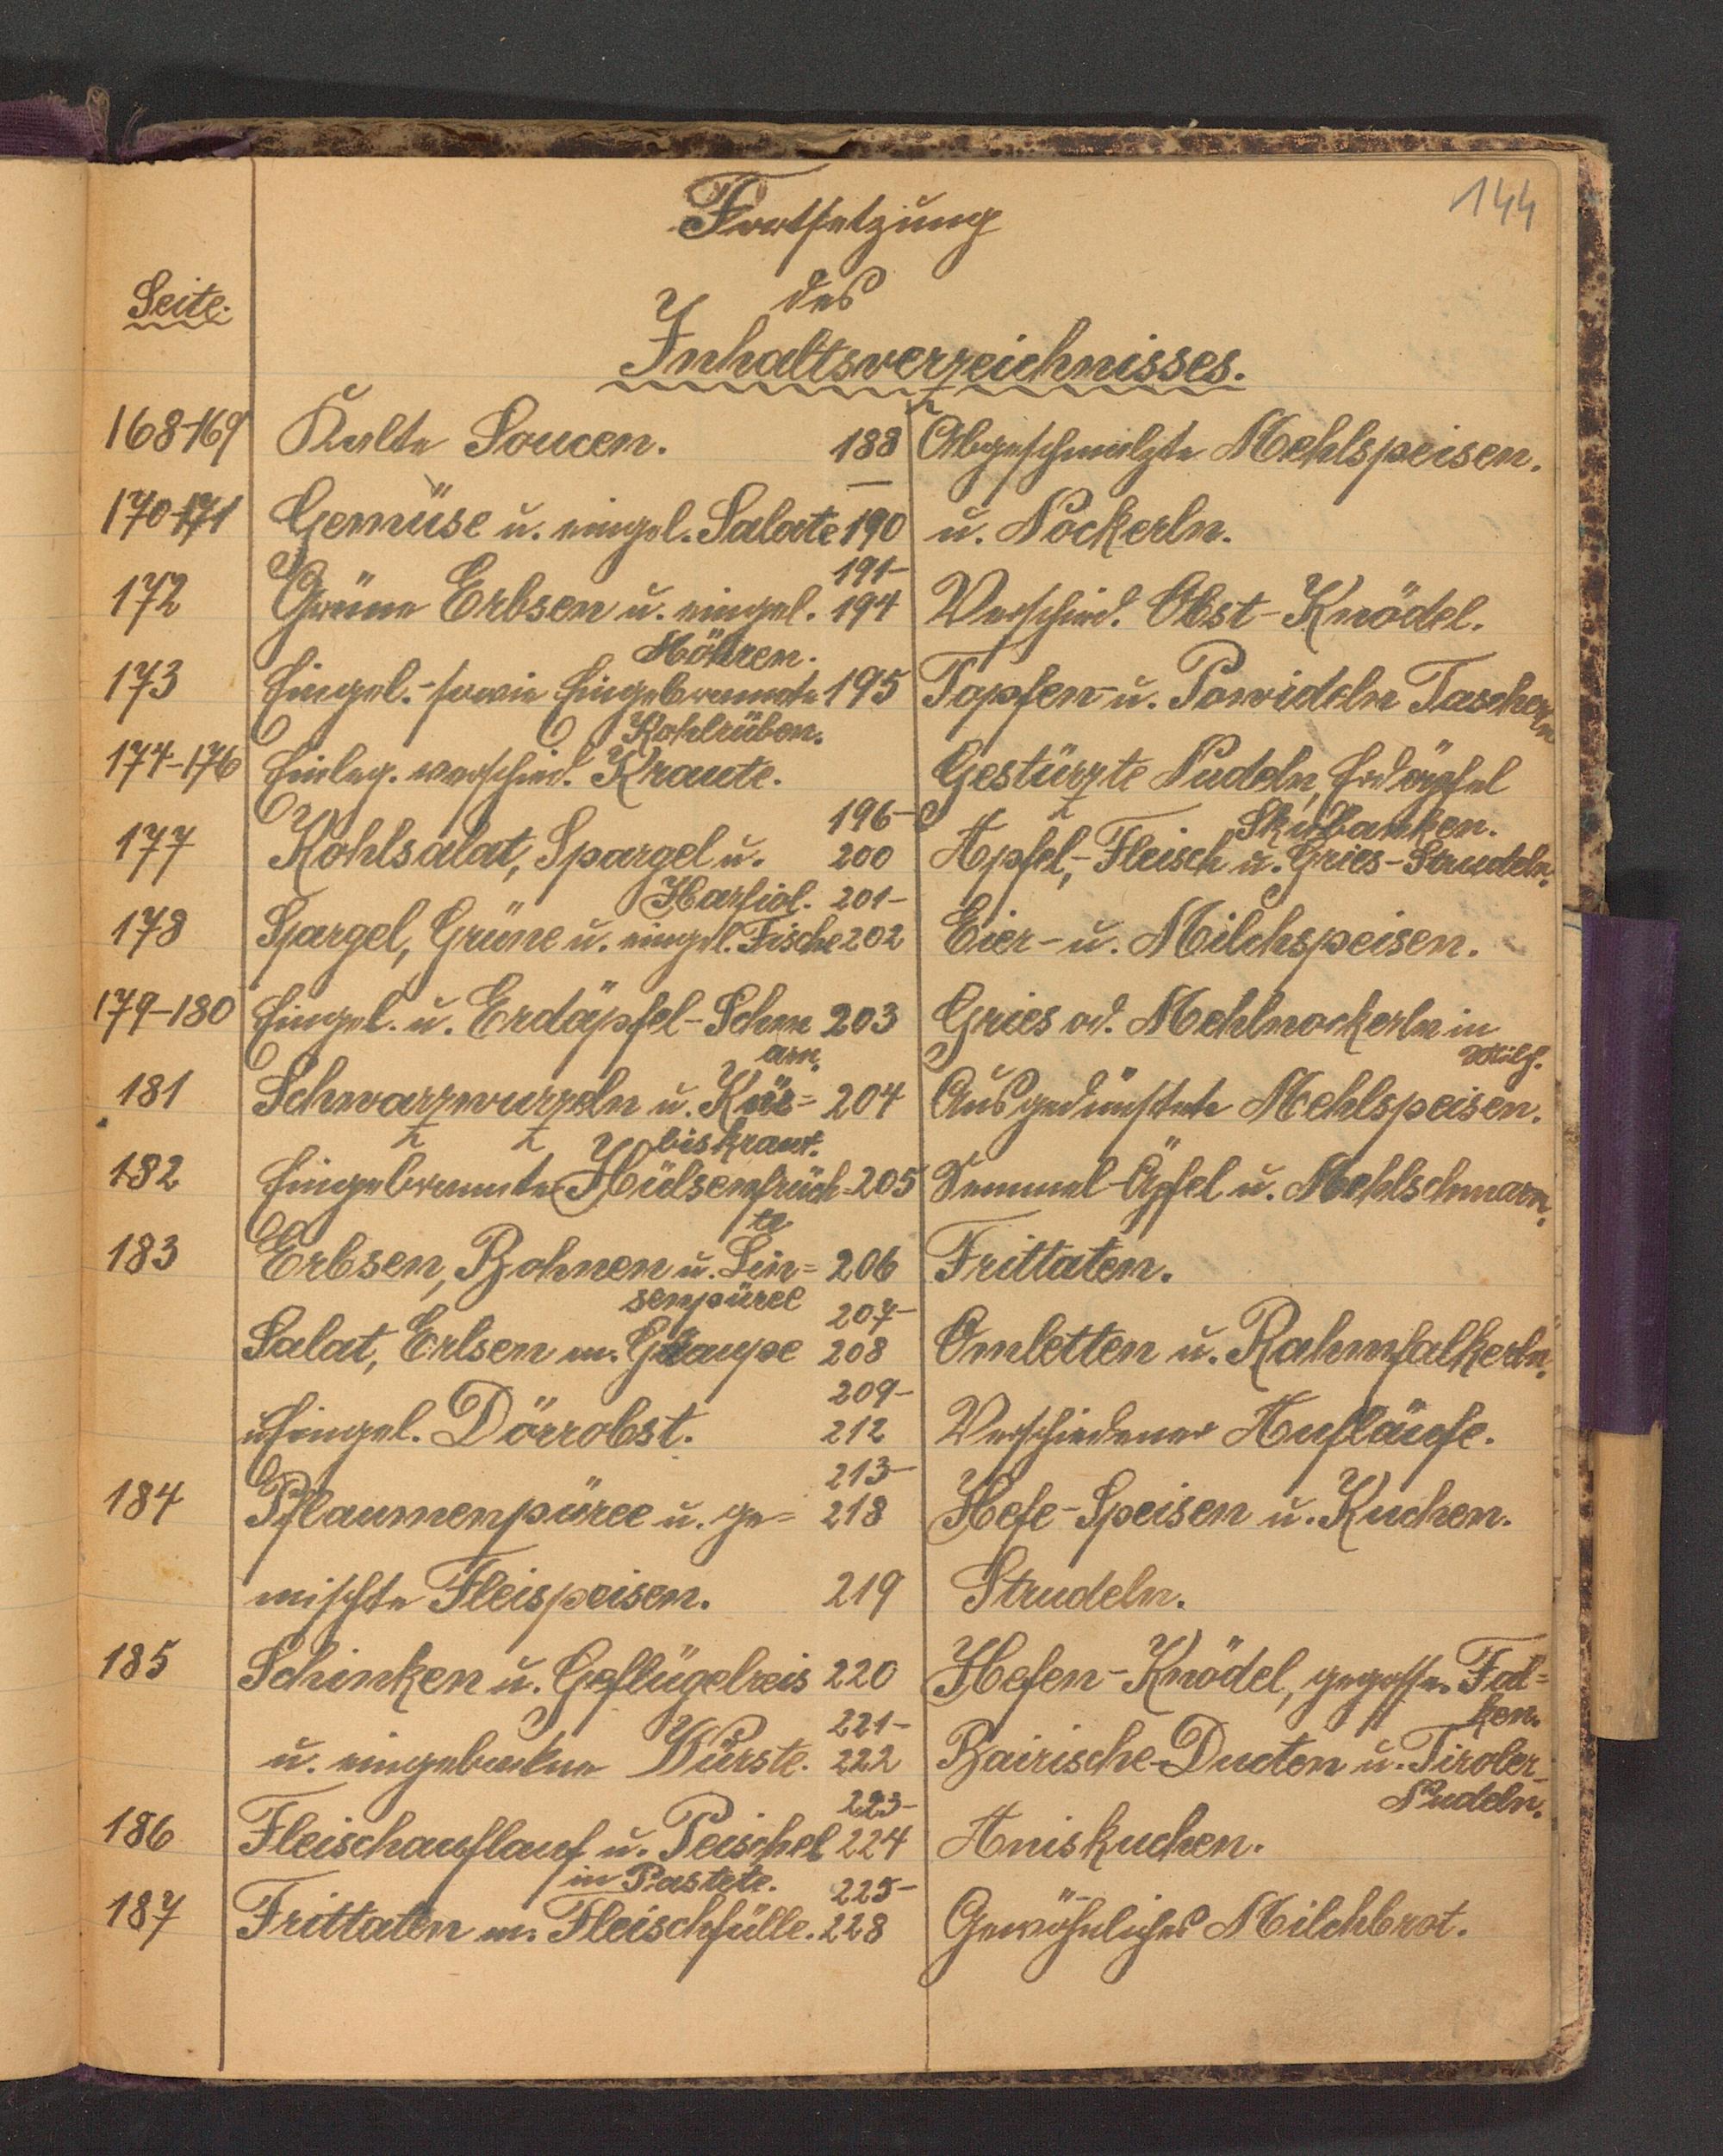 144
Fortsetzung
des
Seite.
Inhaltsverzeichnisses.
168-169 Kalte Soucen.
170-171 Gemüse u. eingel. Salate
172 Grüne Erbsen u. eingel.
Möhren.
173 Eingel.- sowie Eingebrannte
Kohlrüben.
174-176 Einleg. verschied. Kraute.
177 Kohlsalat, Spargel u.
Karfiol.
178 Spargel, Grüne u. eingel. Fische
179-180 Eingel. u. Erdäpfel-Schm
arn.
181 Schwarzwurzeln u. Kür=
biskraut.
182 Eingebrannte Hülsenfrüch=
te
183 Erbsen, Bohnen u. Lin=
senpüree
Salat, Erlsen m. Graupe
u Eingel. Dörrobst.
184 Pflaumenpüree u. ge=
mischte Fleispeisen.
185 Schinken u. Geflügelreis
u. eingebackne Würste.
186 Fleischauflauf u. Peischel
in Pastete.
187 Frittaten m. Fleischfülle.
188 Abgeschmalzte Mehlspeisen.
—
190 u. Nockerln.
191-
194 Verschied. Obst-Knödel.
195 Topfen- u. Powideln Tascherln
Gestürzte Nudeln, Erdäpfel
Skubanken.
196-
200 Apfel,- Fleisch u. Gries-Strudeln.
201-
202 Eier- u. Milchspeisen.
203 Gries od. Mehlnockerln in
Milch.
204 Ausgedünstete Mehlspeisen.
205 Semmel-Äpfel u. Mehlschmarn.
206 Frittaten.
207-
208 Omletten u. Rahmfalkerln.
209-
212 Verschiedener Aufläufe.
213-
218 Hefe-Speisen u. Kuchen.
219 Strudeln.
220 Hefen-Knödel, gegossene Fal=
ken.
221-
222 Bairische-Ducten u. Tiroler-
Nudeln.
223-
224 Aniskuchen.
225-
228 Gewöhnliches Milchbrot.